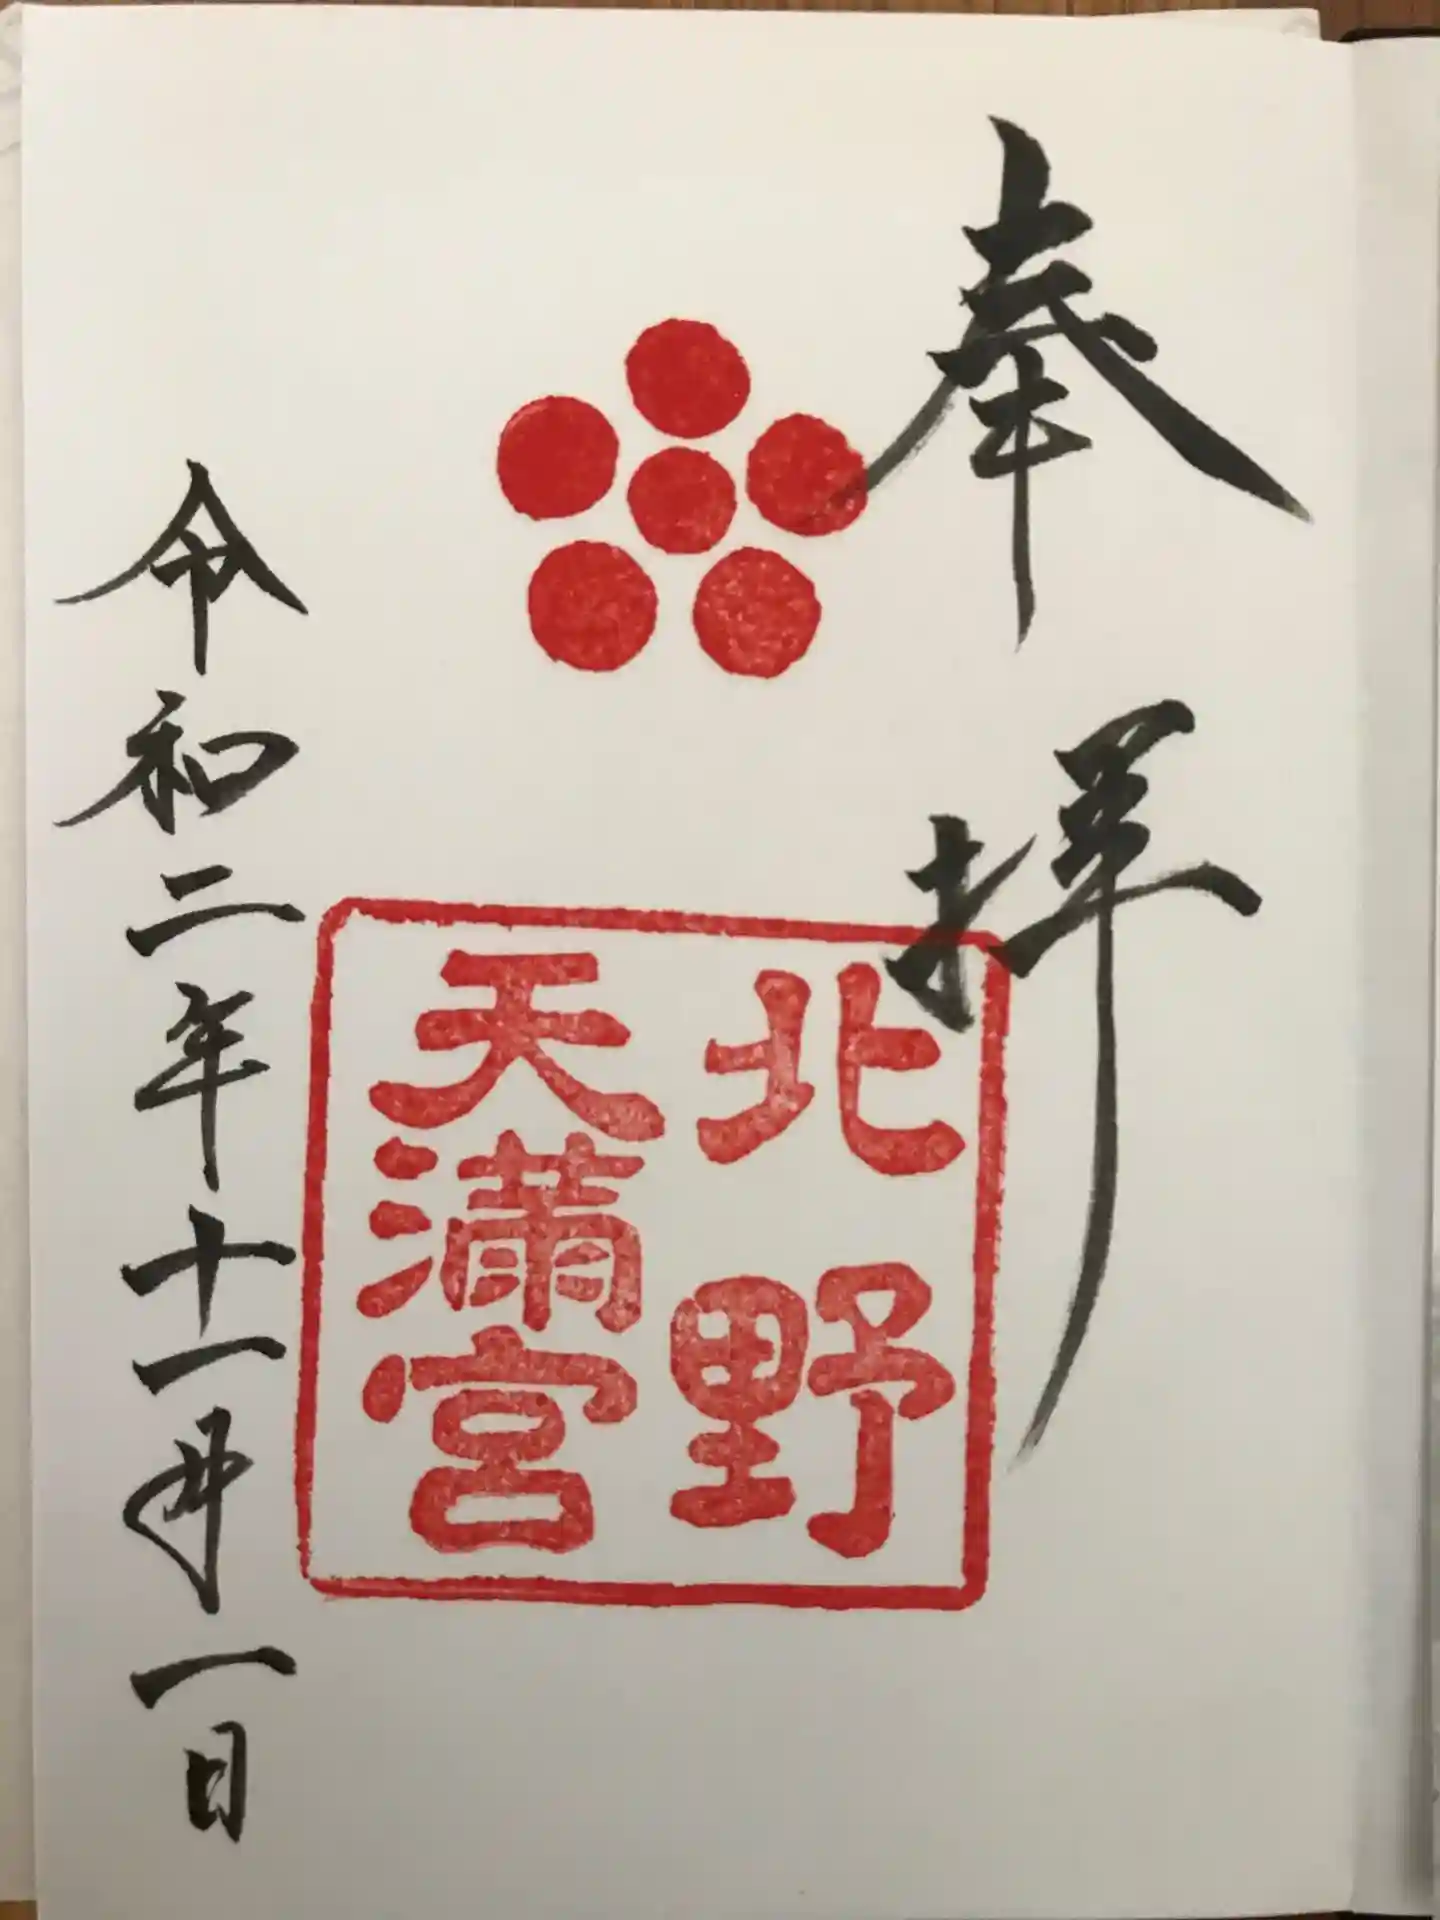 奉拝
北野
天満宮
令和二年十一月一日